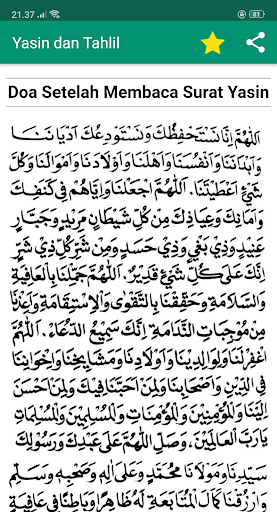 21.37
Yasin dan Tahlil
Doa Setelah Membaca Surat Yasin
اَللّٰهُمَّ اِنَّا نَسْتَحْفِظُكَ وَنَسْتَوْدِعُكَ اَدْيَانَنَا
وَاَبْدَانَنَا وَاَنْفُسَنَا وَاَهْلَنَا وَاَوْلَادَنَا وَاَمْوَالَنَا وَكُلَّ
شَيْءٍ اَعْطَيْتَنَا. اَللّٰهُمَّ اجْعَلْنَا وَاِيَّاهُمْ فِي كَنَفِكَ
وَاَمَانِكَ وَعِيَاذِكَ مِنْ كُلِّ شَيْطَانٍ مَرِيْدٍ وَجَبَّارٍ
عَنِيْدٍ وَذِيْ بَغْيٍ وَذِيْ حَسَدٍ وَمِنْ شَرِّ كُلِّ ذِيْ شَرٍّ
اِنَّكَ عَلَى كُلِّ شَيْءٍ قَدِيْرٌ. اَللّٰهُمَّ جَمِّلْنَا بِالْعَافِيَةِ
وَالسَّلَامَةِ وَحَقِّقْنَا بِالتَّقْوَى وَالْاِسْتِقَامَةِ وَاَعِذْنَا
مِنْ مُوْجِبَاتِ النَّدَامَةِ اِنَّكَ سَمِيْعُ الدُّعَاءِ. اَللّٰهُمَّ
اغْفِرْ لَنَا وَلِوَالِدِيْنَا وَاَوْلَادِنَا وَمَشَايِخِنَا وَاِخْوَانِنَا
فِي الدِّيْنِ وَاَصْحَابِنَا وَلِمَنْ اَحَبَّنَا فِيْكَ وَلِمَنْ اَحْسَنَ
اِلَيْنَا وَلِلْمُؤْمِنِيْنَ وَالْمُؤْمِنَاتِ وَالْمُسْلِمِيْنَ وَالْمُسْلِمَاتِ
يَارَبَّ الْعَالَمِيْنَ، وَصَلِّ اللّٰهُمَّ عَلَى عَبْدِكَ وَرَسُوْلِكَ
سَيِّدِنَا وَمَوْلَانَا مُحَمَّدٍ وَعَلَى اٰلِهِ وَصَحْبِهِ وَسَلِّمْ
وَارْزُقْنَا كَمَالَ الْمُتَابَعَةِ لَهُ ظَاهِرًا وَبَاطِنًا فِي عَافِيَةٍ